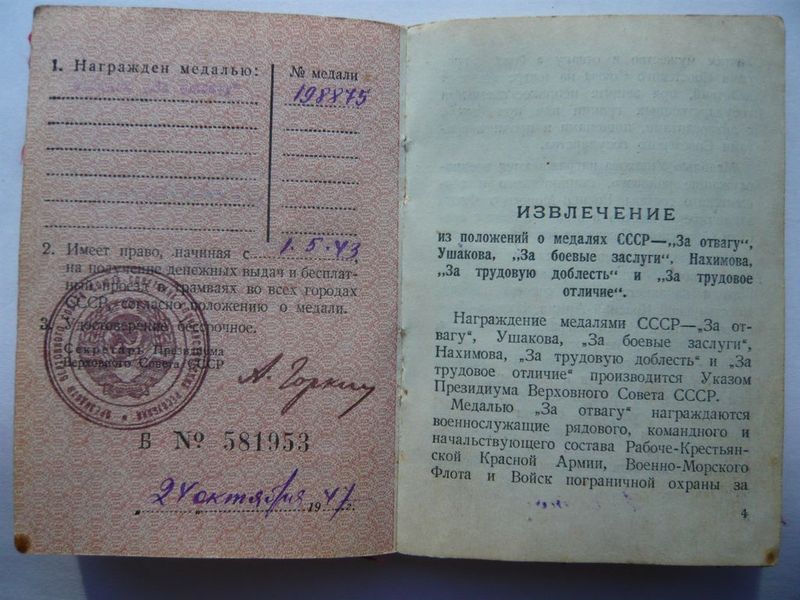 1. Награжден медалью:
№ медали
198875
2. Имеет право, начиная с 1.5.43
на получение денежных выдач и бесплат-
ный проезд в трамваях во всех городах
СССР, согласно положению о медали.
3. Удостоверение бессрочное.
Секретарь Президиума
Верховного Совета СССР
А. Горкин
Б № 581953
„24“ октября 1947г.
ИЗВЛЕЧЕНИЕ
из положений о медалях СССР—„За отвагу“,
Ушакова, „За боевые заслуги“, Нахимова,
„За трудовую доблесть“ и „За трудовое
отличие“.
Награждение медалями СССР—„За от-
вагу“, Ушакова, „За боевые заслуги“,
Нахимова, „За трудовую доблесть“ и „За
трудовое отличие“ производится Указом
Президиума Верховного Совета СССР.
Медалью „За отвагу“ награждаются
военнослужащие рядового, командного и
начальствующего состава Рабоче-Крестьян-
ской Красной Армии, Военно-Морского
Флота и Войск пограничной охраны за
4